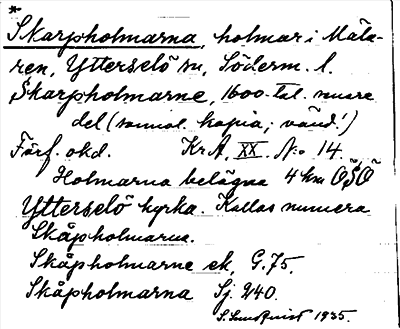 *
Skarpholmarna, holmar i Mäla-
ren, Ytterselö sn, Söderm. l.
Skarpholmarne, 1600-tal. nuare
del (sannol. kopia; vänd!)
Förf. okd. Kr A, XX. No 14.
Holmarna belägna 4 km ÖSÖ
Ytterselö kyrka. Kallas numera
Skåpholmarna.
Skåpholmarne ek, G. 75.
Skåpholmarna Sj. 240.
S. Lundquist 1935.